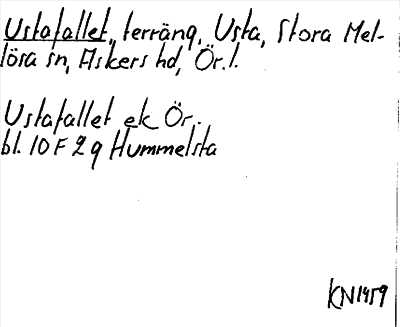 Ustafallet, terräng, Usta, Stora Mel-
lösa sn, Askers hd, Ör. l.
Ustafallet ek Ör.
bl. 10 F 2 g Hummelsta
KN1959